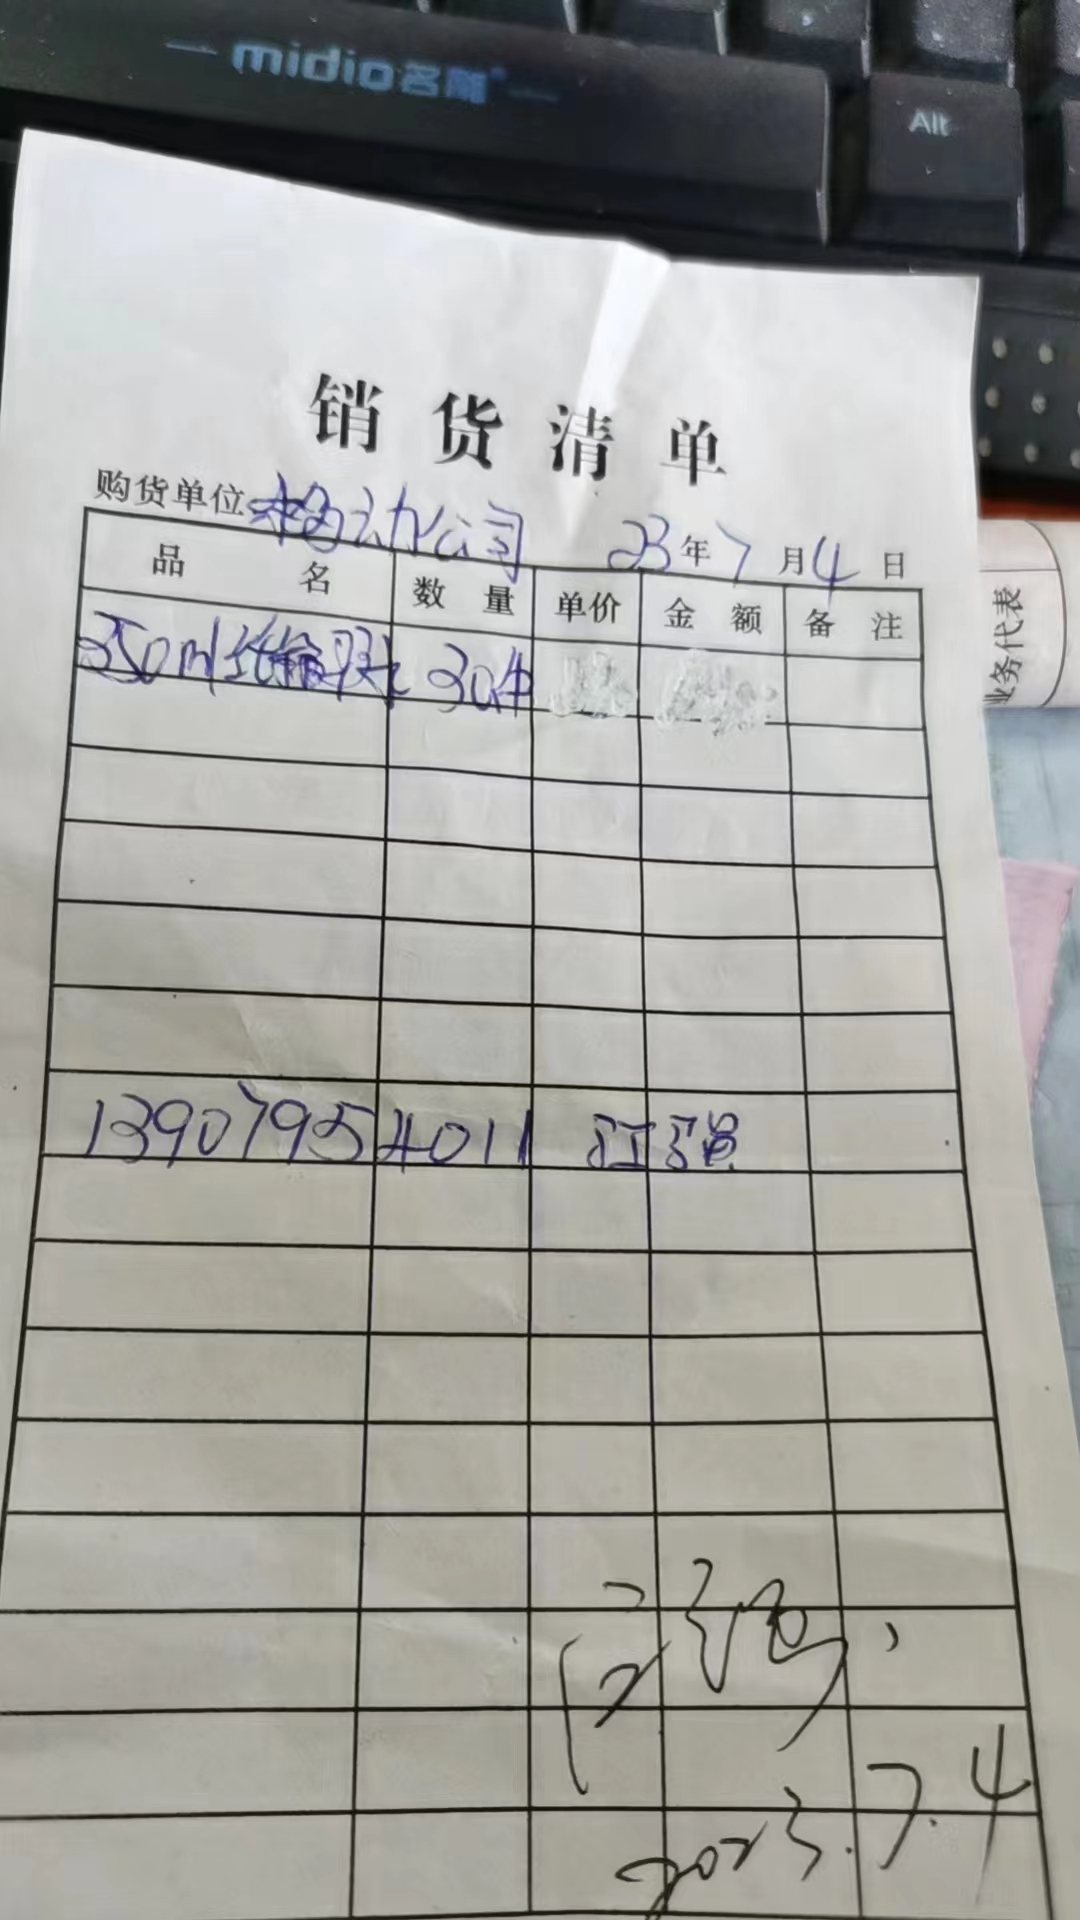 midio名雕
Alt
销货清单
购货单位 移动公司 23年7月4日
品名 数量 单价 金额 备注
350ml 30件
业务代表
13907954011 江强
2023.7.4